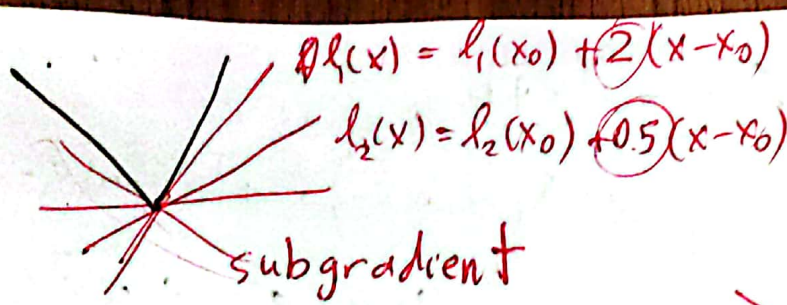 l₁(x) = l₁(x₀) + 2(x-x₀)
l₂(x) = l₂(x₀) + 0.5(x-x₀)
subgradient